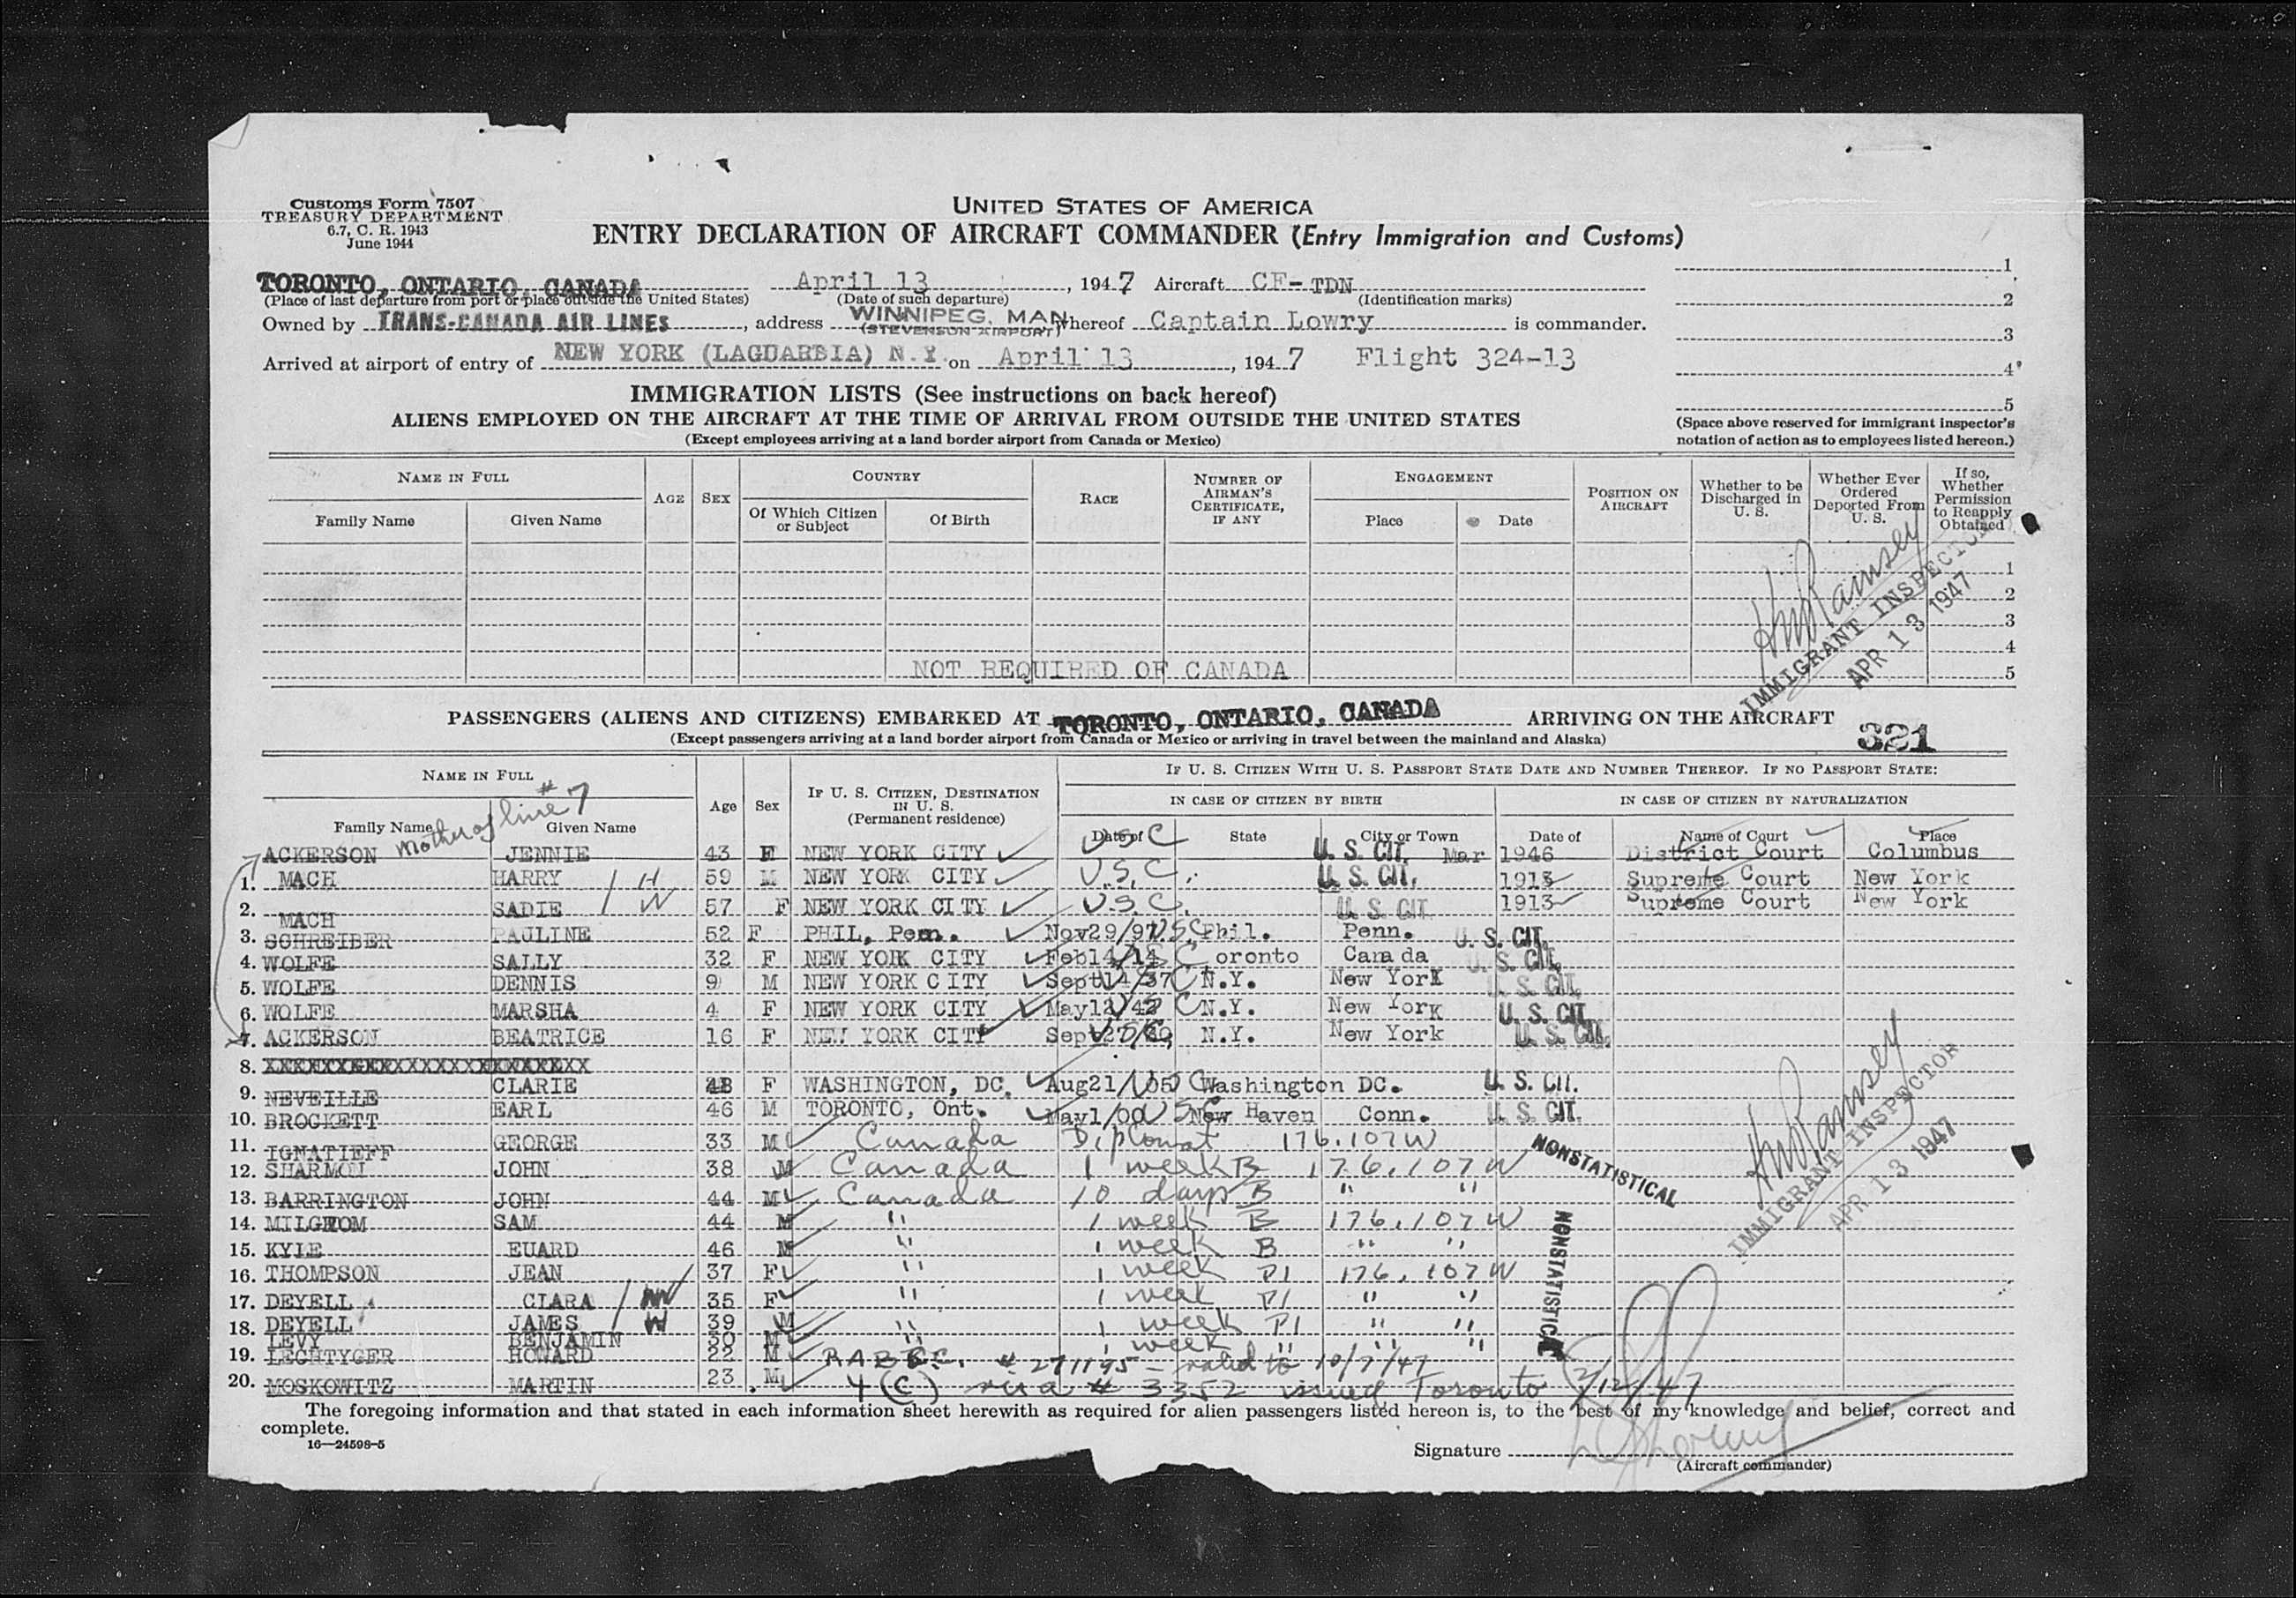 Customs Form 7507
TREASURY DEPARTMENT
6.7, C. R. 1943
June 1944
UNITED STATES OF AMERICA
ENTRY DECLARATION OF AIRCRAFT COMMANDER (Entry Immigration and Customs)
TORONTO, ONTARIO, CANADA April 13, 1947 Aircraft CF-TDN
(Place of last departure from port or place outside the United States) (Date of such departure) (Identification marks)
Owned by TRANS-CANADA AIR LINES, address WINNIPEG, MAN. (STEVENSON AIRPORT) whereof Captain Lowry is commander.
Arrived at airport of entry of NEW YORK (LAGUARDIA) N.Y. on April 13, 1947 Flight 324-13
1
2
3
4
5
(Space above reserved for immigrant inspector's notation of action as to employees listed hereon.)
IMMIGRATION LISTS (See instructions on back hereof)
ALIENS EMPLOYED ON THE AIRCRAFT AT THE TIME OF ARRIVAL FROM OUTSIDE THE UNITED STATES
(Except employees arriving at a land border airport from Canada or Mexico)
NAME IN FULL AGE SEX COUNTRY RACE NUMBER OF AIRMAN'S CERTIFICATE, IF ANY ENGAGEMENT POSITION ON AIRCRAFT Whether to be Discharged in U. S. Whether Ever Ordered Deported From U. S. If so, Whether Permission to Reapply Obtained
Family Name Given Name Of Which Citizen or Subject Of Birth Place Date
1
2
3
4
NOT REQUIRED OF CANADA 5
IMMIGRANT INSPECTOR
APR 13 1947
PASSENGERS (ALIENS AND CITIZENS) EMBARKED AT TORONTO, ONTARIO, CANADA ARRIVING ON THE AIRCRAFT
321
(Except passengers arriving at a land border airport from Canada or Mexico or arriving in travel between the mainland and Alaska)
NAME IN FULL Age Sex IF U. S. CITIZEN, DESTINATION IN U. S. (Permanent residence) IF U. S. CITIZEN WITH U. S. PASSPORT STATE DATE AND NUMBER THEREOF. IF NO PASSPORT STATE:
IN CASE OF CITIZEN BY BIRTH IN CASE OF CITIZEN BY NATURALIZATION
Family Name Given Name Date of State City or Town Date of Name of Court Place
Mother of line #7
ACKERSON JENNIE 43 F NEW YORK CITY U S C U. S. CIT. Mar 1946 District Court Columbus
1. MACH HARRY H 59 M NEW YORK CITY U.S.C. U. S. CIT. 1913 Supreme Court New York
2. MACH SADIE W 57 F NEW YORK CITY U.S.C. U. S. CIT. 1913 Supreme Court New York
3. SCHREIBER PAULINE 52 F PHIL, Penn. Nov29/97 USC Phil. Penn. U. S. CIT.
4. WOLFE SALLY 32 F NEW YORK CITY Feb14/14 USC oronto Canada U. S. CIT.
5. WOLFE DENNIS 9 M NEW YORK CITY Sept14/37 USC N.Y. New York U. S. CIT.
6. WOLFE MARSHA 4 F NEW YORK CITY May12/42 USC N.Y. New York U. S. CIT.
7. ACKERSON BEATRICE 16 F NEW YORK CITY Sept27/30 USC N.Y. New York U. S. CIT.
8.
9. NEVEILLE CLARIE F WASHINGTON, DC. Aug21/05 USC Washington DC. U. S. CIT.
10. BROCKETT EARL 46 M TORONTO, Ont. May1/00 USC New Haven Conn. U. S. CIT.
11. IGNATIEFF GEORGE 33 M Canada Diplomat 176.107W
12. SHARMON JOHN 38 M Canada 1 week B 176.107W
NONSTATISTICAL
13. BARRINGTON JOHN 44 M Canada 10 days B " "
14. MILGROM SAM 44 M " 1 week B 176.107W
15. KYLE EUARD 46 M " 1 week B " "
16. THOMPSON JEAN 37 F " 1 week P1 176.107W
17. DEYELL CLARA 35 F " 1 week P1 " "
18. DEYELL JAMES W 39 M " 1 week P1 " "
LEVY BENJAMIN 30 M " 1 week " "
19. LECHTYGER HOWARD 22 M # 271195 - valid to 10/7/47
20. MOSKOWITZ MARTIN 23 M 4(C) visa # 3352 issued Toronto 2/12/47
NONSTATISTICAL
IMMIGRANT INSPECTOR
APR 13 1947
The foregoing information and that stated in each information sheet herewith as required for alien passengers listed hereon is, to the best of my knowledge and belief, correct and
complete.
16—24598-5
Signature
(Aircraft commander)